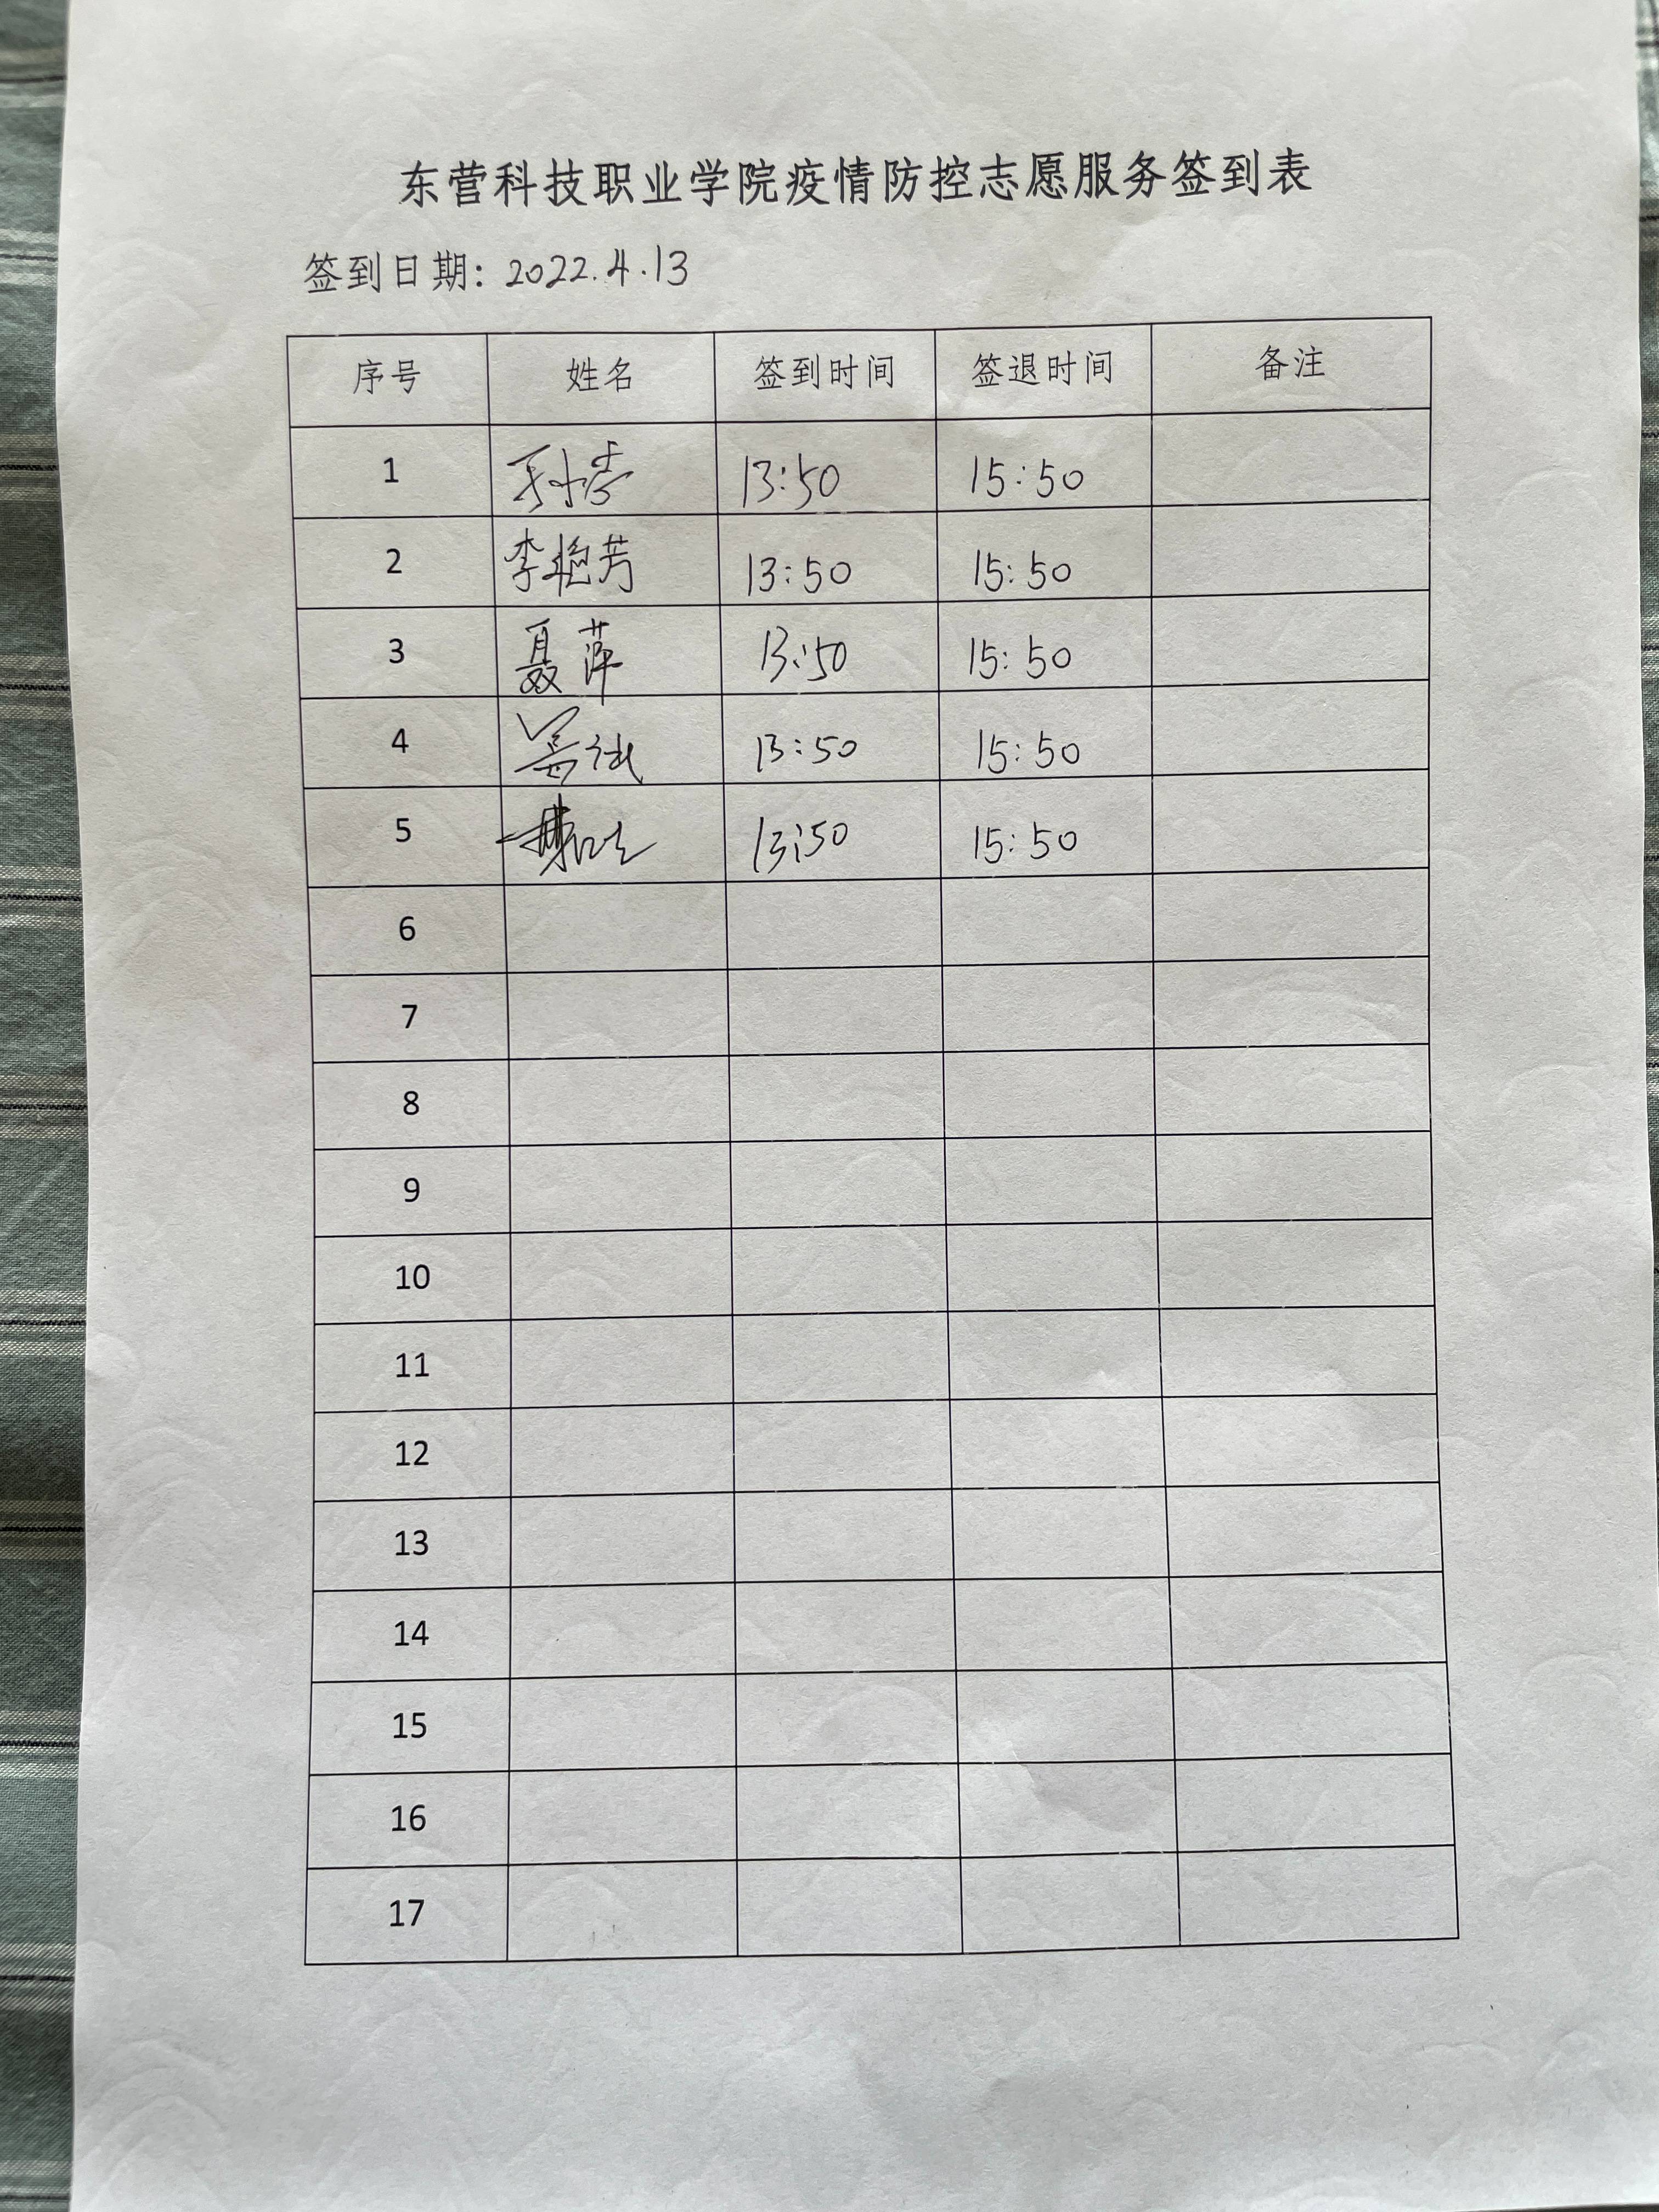 东营科技职业学院疫情防控志愿服务签到表
签到日期: 2022.4.13
序号 姓名 签到时间 签退时间 备注
1 13:50 15:50
2 李艳芳 13:50 15:50
3 聂萍 13:50 15:50
4 13:50 15:50
5 13:50 15:50
6
7
8
9
10
11
12
13
14
15
16
17